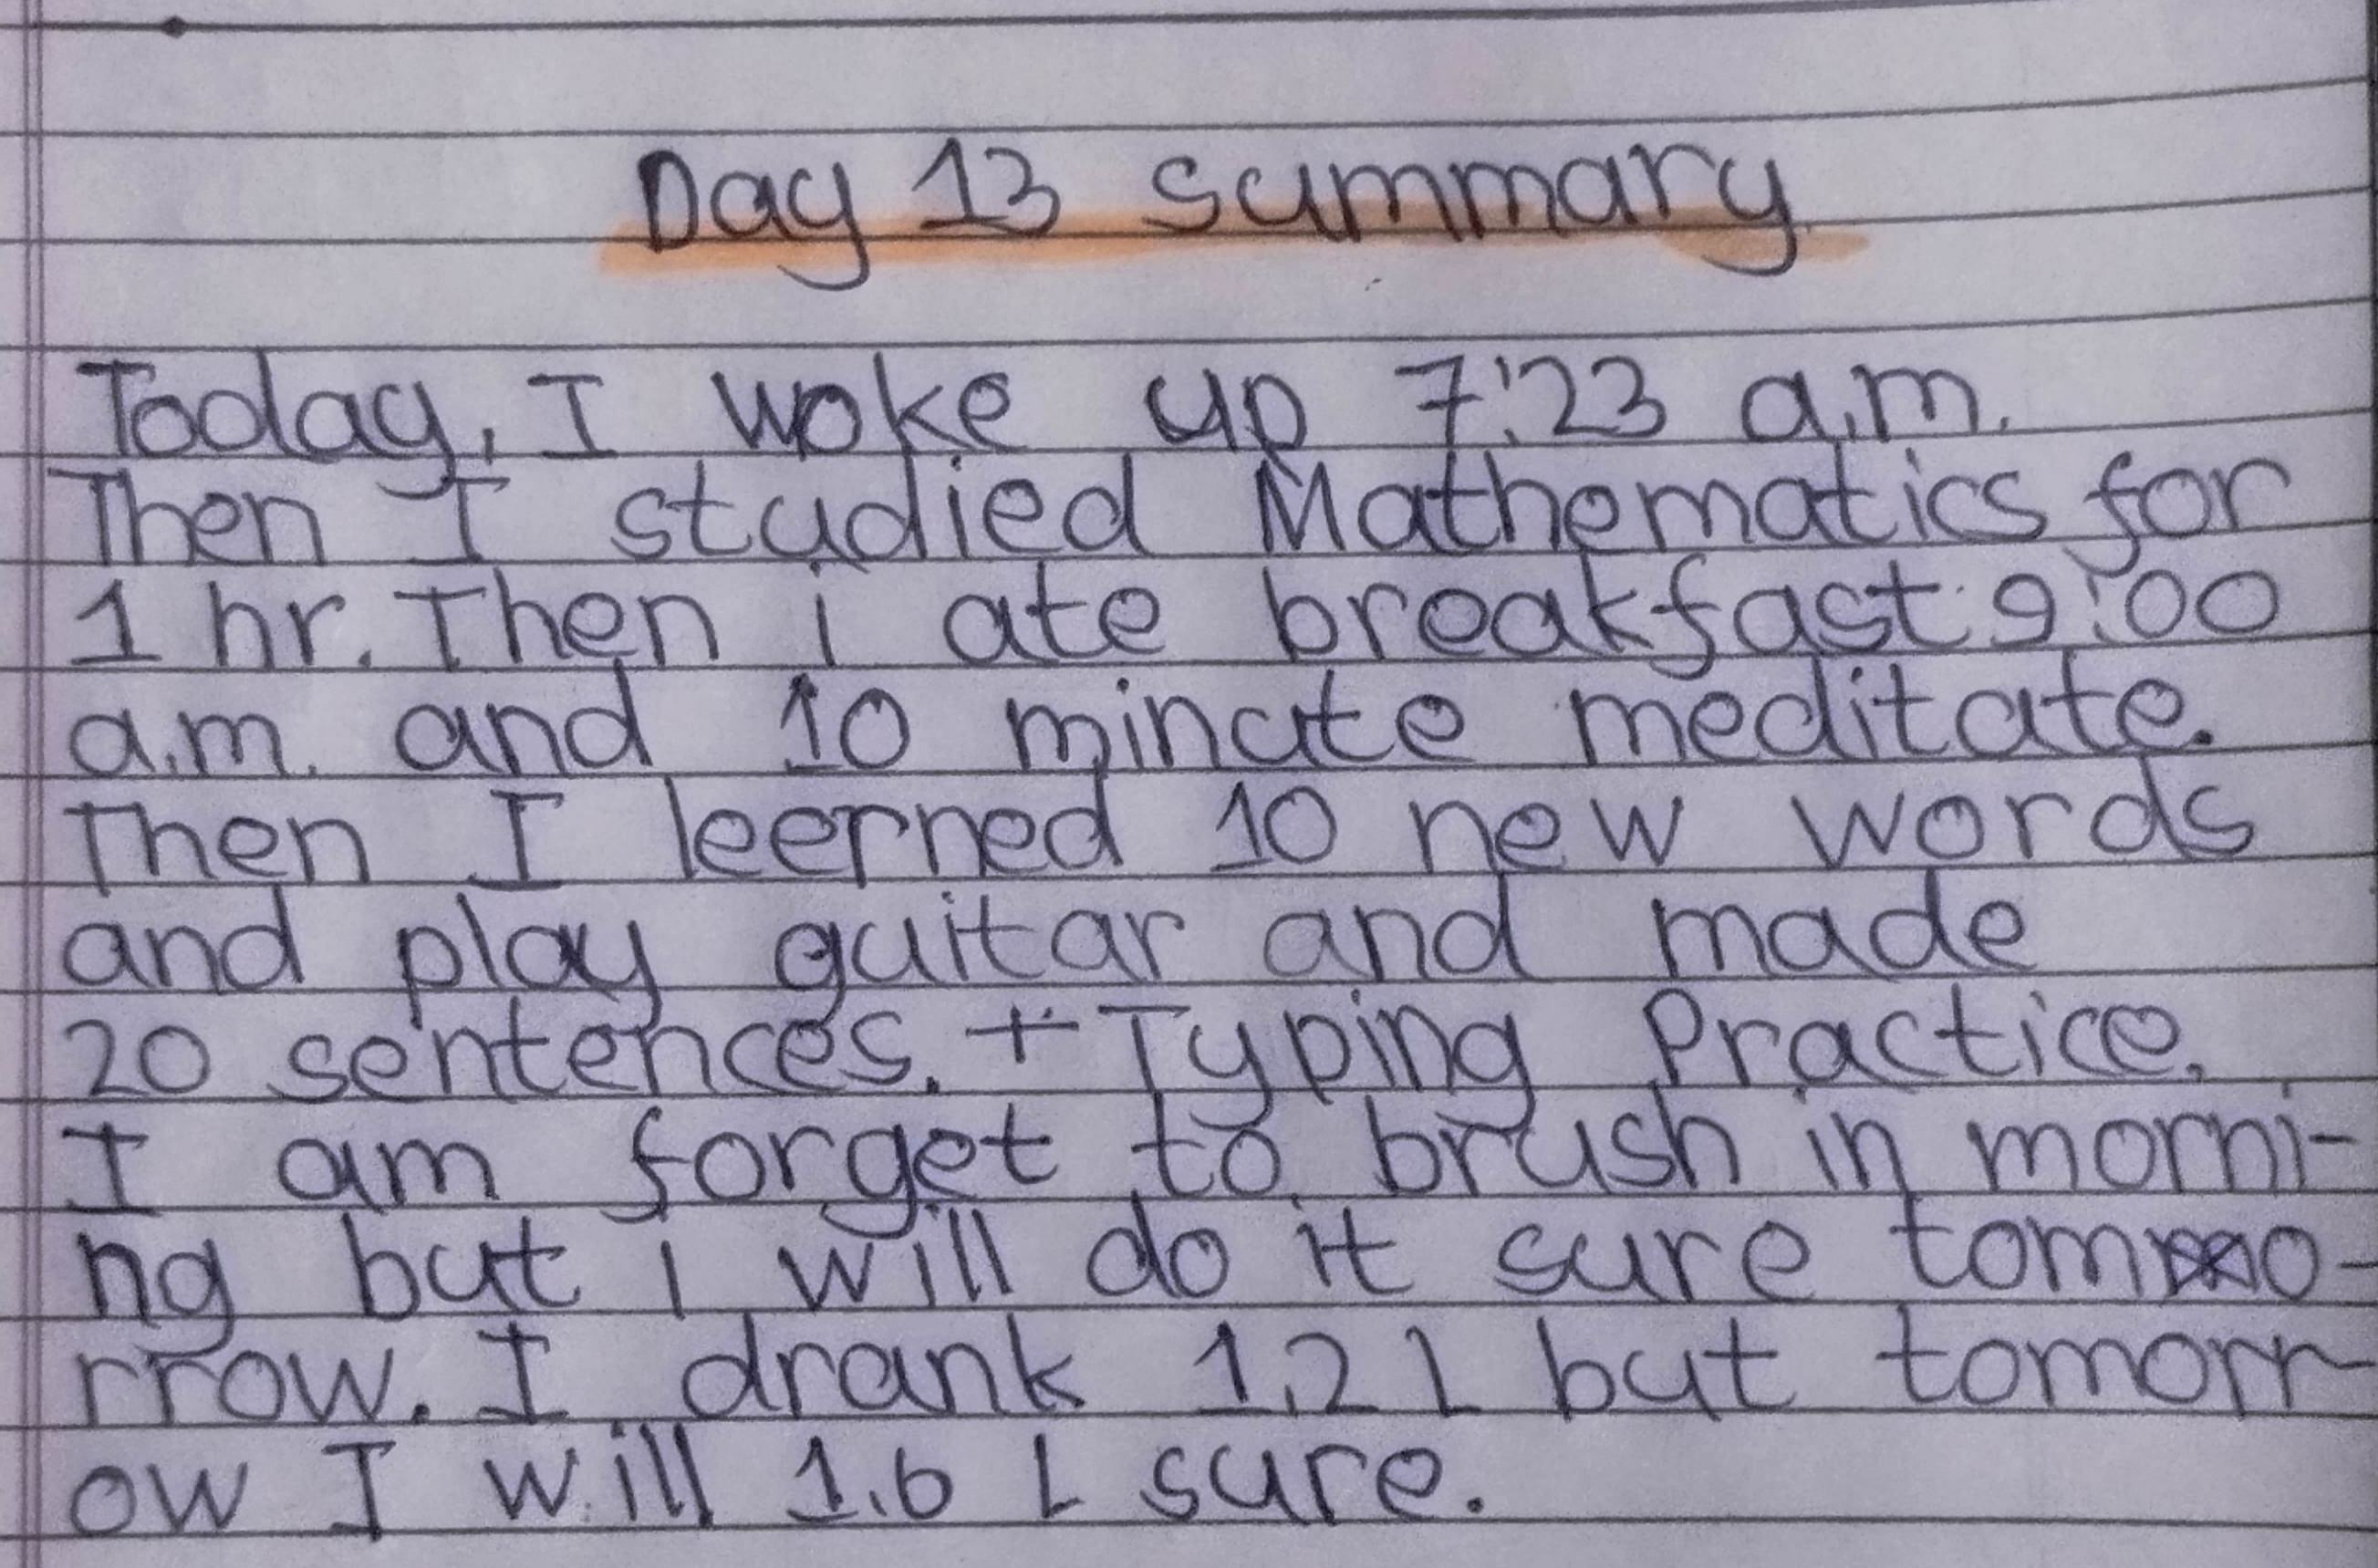 Day 13 summary
Today, I woke up 7:23 a.m.
Then I studied Mathematics for
1 hr. Then i ate breakfast 9:00
a.m. and 10 minute meditate.
Then I leerned 10 new words
and play guitar and made
20 sentences. + Typing Practice.
I am forget to brush in morni-
ng but i will do it sure tomo-
rrow. I drank 1.2 L but tomorr-
ow I will 1.6 L sure.